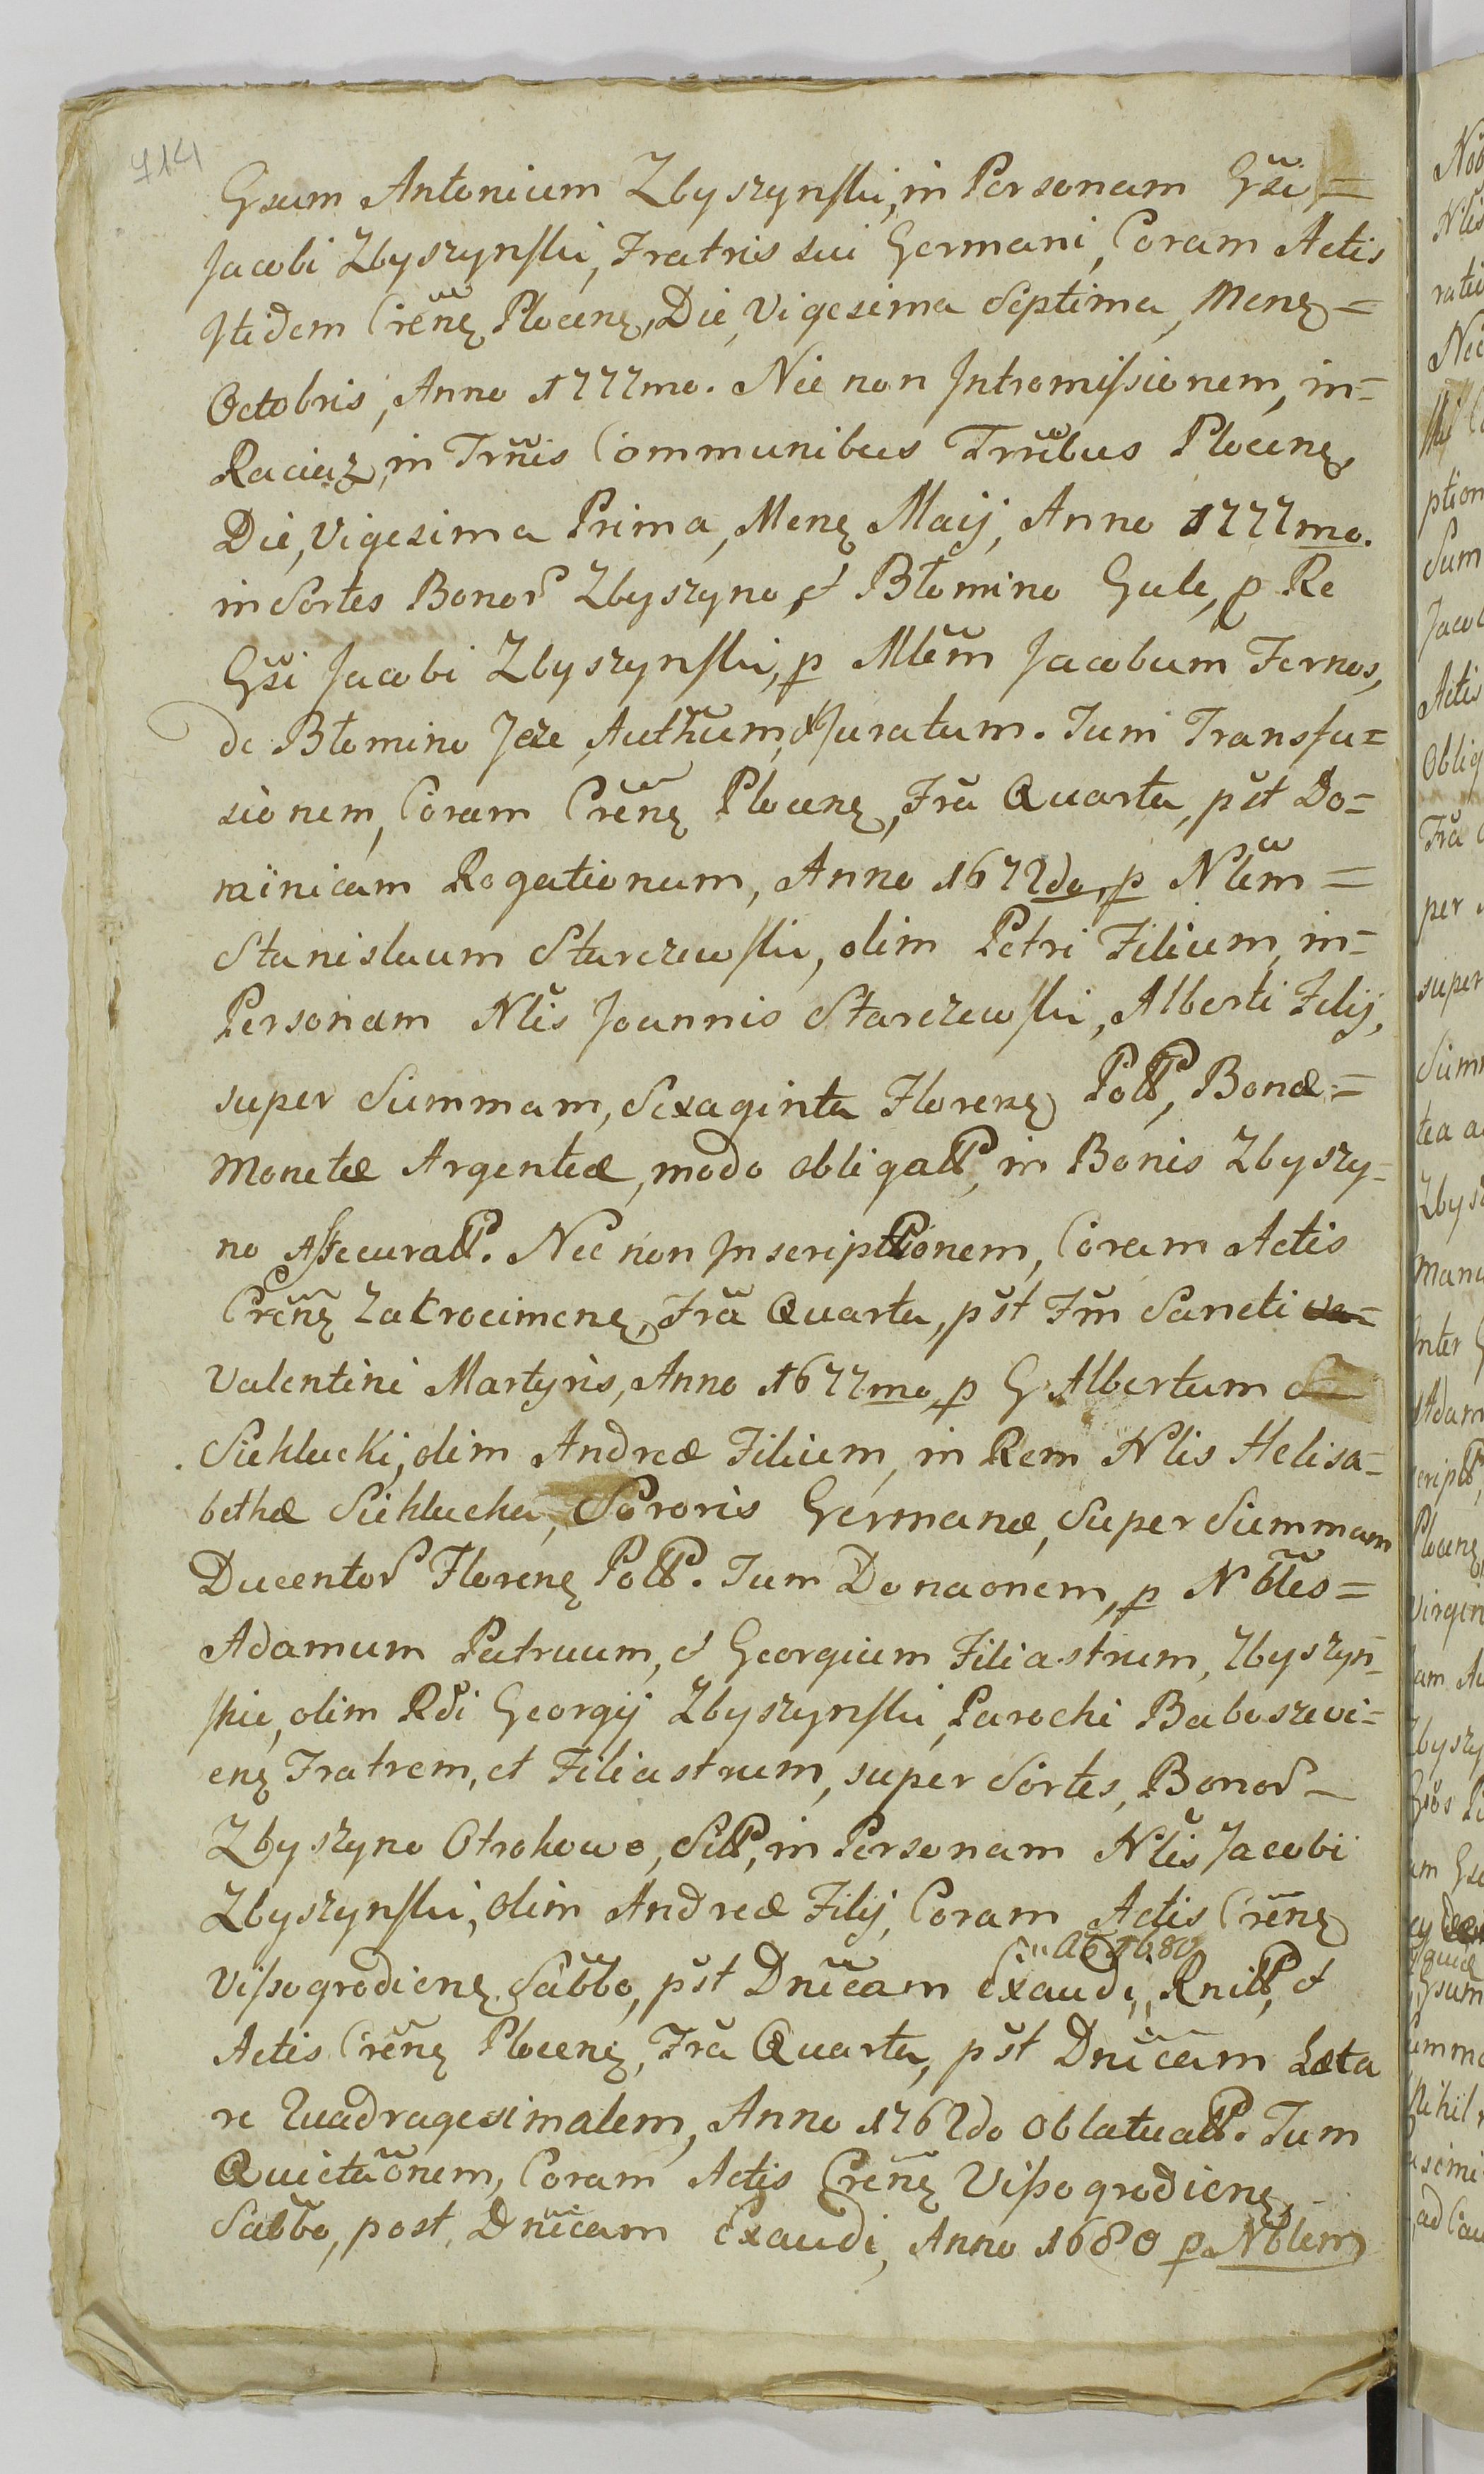 714
Gsum Antonium Zbyszynski, in Personam Gsi =
Jacobi Zbyszynski, Fratris sui Germani, Coram Actis
Itidem Crẽnꝫ Plocenꝫ, Die, Vigesima Septima, Menꝫ =
Octobris, Anno 1777mo. Nec non Intromissionem, in =
Raciąz, in Trñis Communibus Trrũbus Plocenꝫ,
Die, Vigesima Prima, Menꝫ Maij, Anno 1777mo.
in Sortes Bonor Zbyszyno, et Błomino Gule, p Re
Gsi Jacobi Zbyszynski, p Mlem Jacobum Fornos,
de Błomino Jeze, Authum, & Juratum. Tum Transfu=
sionem, Coram Crẽnꝫ Plocenꝫ, Frã Quarta, pst Do=
minicam Rogationum, Anno 1672do, p Nlem =
Stanislaum Starczewski, olim Petri Filium, in =
Personam Nlis Joannis Starczewski, Alberti Filij,
super Summam, Sexaginta Florenꝫ Poll, Bonæ =
Monetæ Argenteæ, modo obligall, in Bonis Zbyszy-
no Assecurall. Nec non Inscripttionem, Coram Actis
Crẽnꝫ Zakrocimenꝫ, Frã Quarta, pst Fm Sancti Va=
Valentini Martyris, Anno 1677mo, p G Albertum
Sichlucki, olim Andreæ Filium, in Rem Nlis Helisa-
bethæ Sichlucka, Sororis Germanæ, Super Summam
Ducentor Florenꝫ Poll. Tum Donaonem, p Nbles =
Adamum Patruum, et Georgium Filiastrum, Zbyszyn-
skie, olim Rdi Georgij Zbyszynski, Parochi Baboszevi=
enꝫ Fratrem, et Filiastrum, super Sortes, Bonor -
Zbyszyno Otrokowo, Sill, in Personam Nlis Jacobi
Zbyszynski, olim Andreæ Filij, Coram Actis Crẽnꝫ
Ao 1680
Vissogrodienꝫ Sabbo, pst Dnicam Exaudi, Rnill, et
Actis Crẽnꝫ Plocenꝫ, Frã Quarta, pst Dnicam Læta
re Quadragesimalem, Anno 1762do Oblatuall. Tum
Quietaonem, Coram Actis Crẽnꝫ Vissogrodienꝫ,
Sabbo, post, Dnicam Exaudi, Anno 1680 p Nblem